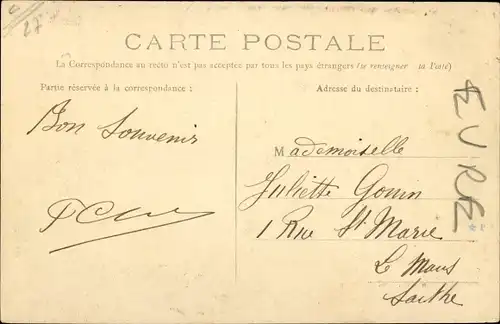 27
CARTE POSTALE
La Correspondance au recto n'est pas acceptée par tous les pays étrangers (se renseigner à la Poste)
Partie réservée à la correspondance :
Adresse du destinataire :
Bon Souvenir
Mademoiselle
Juliette Gouin
1 Rue St Marie
Le Mans
Sarthe
EURE